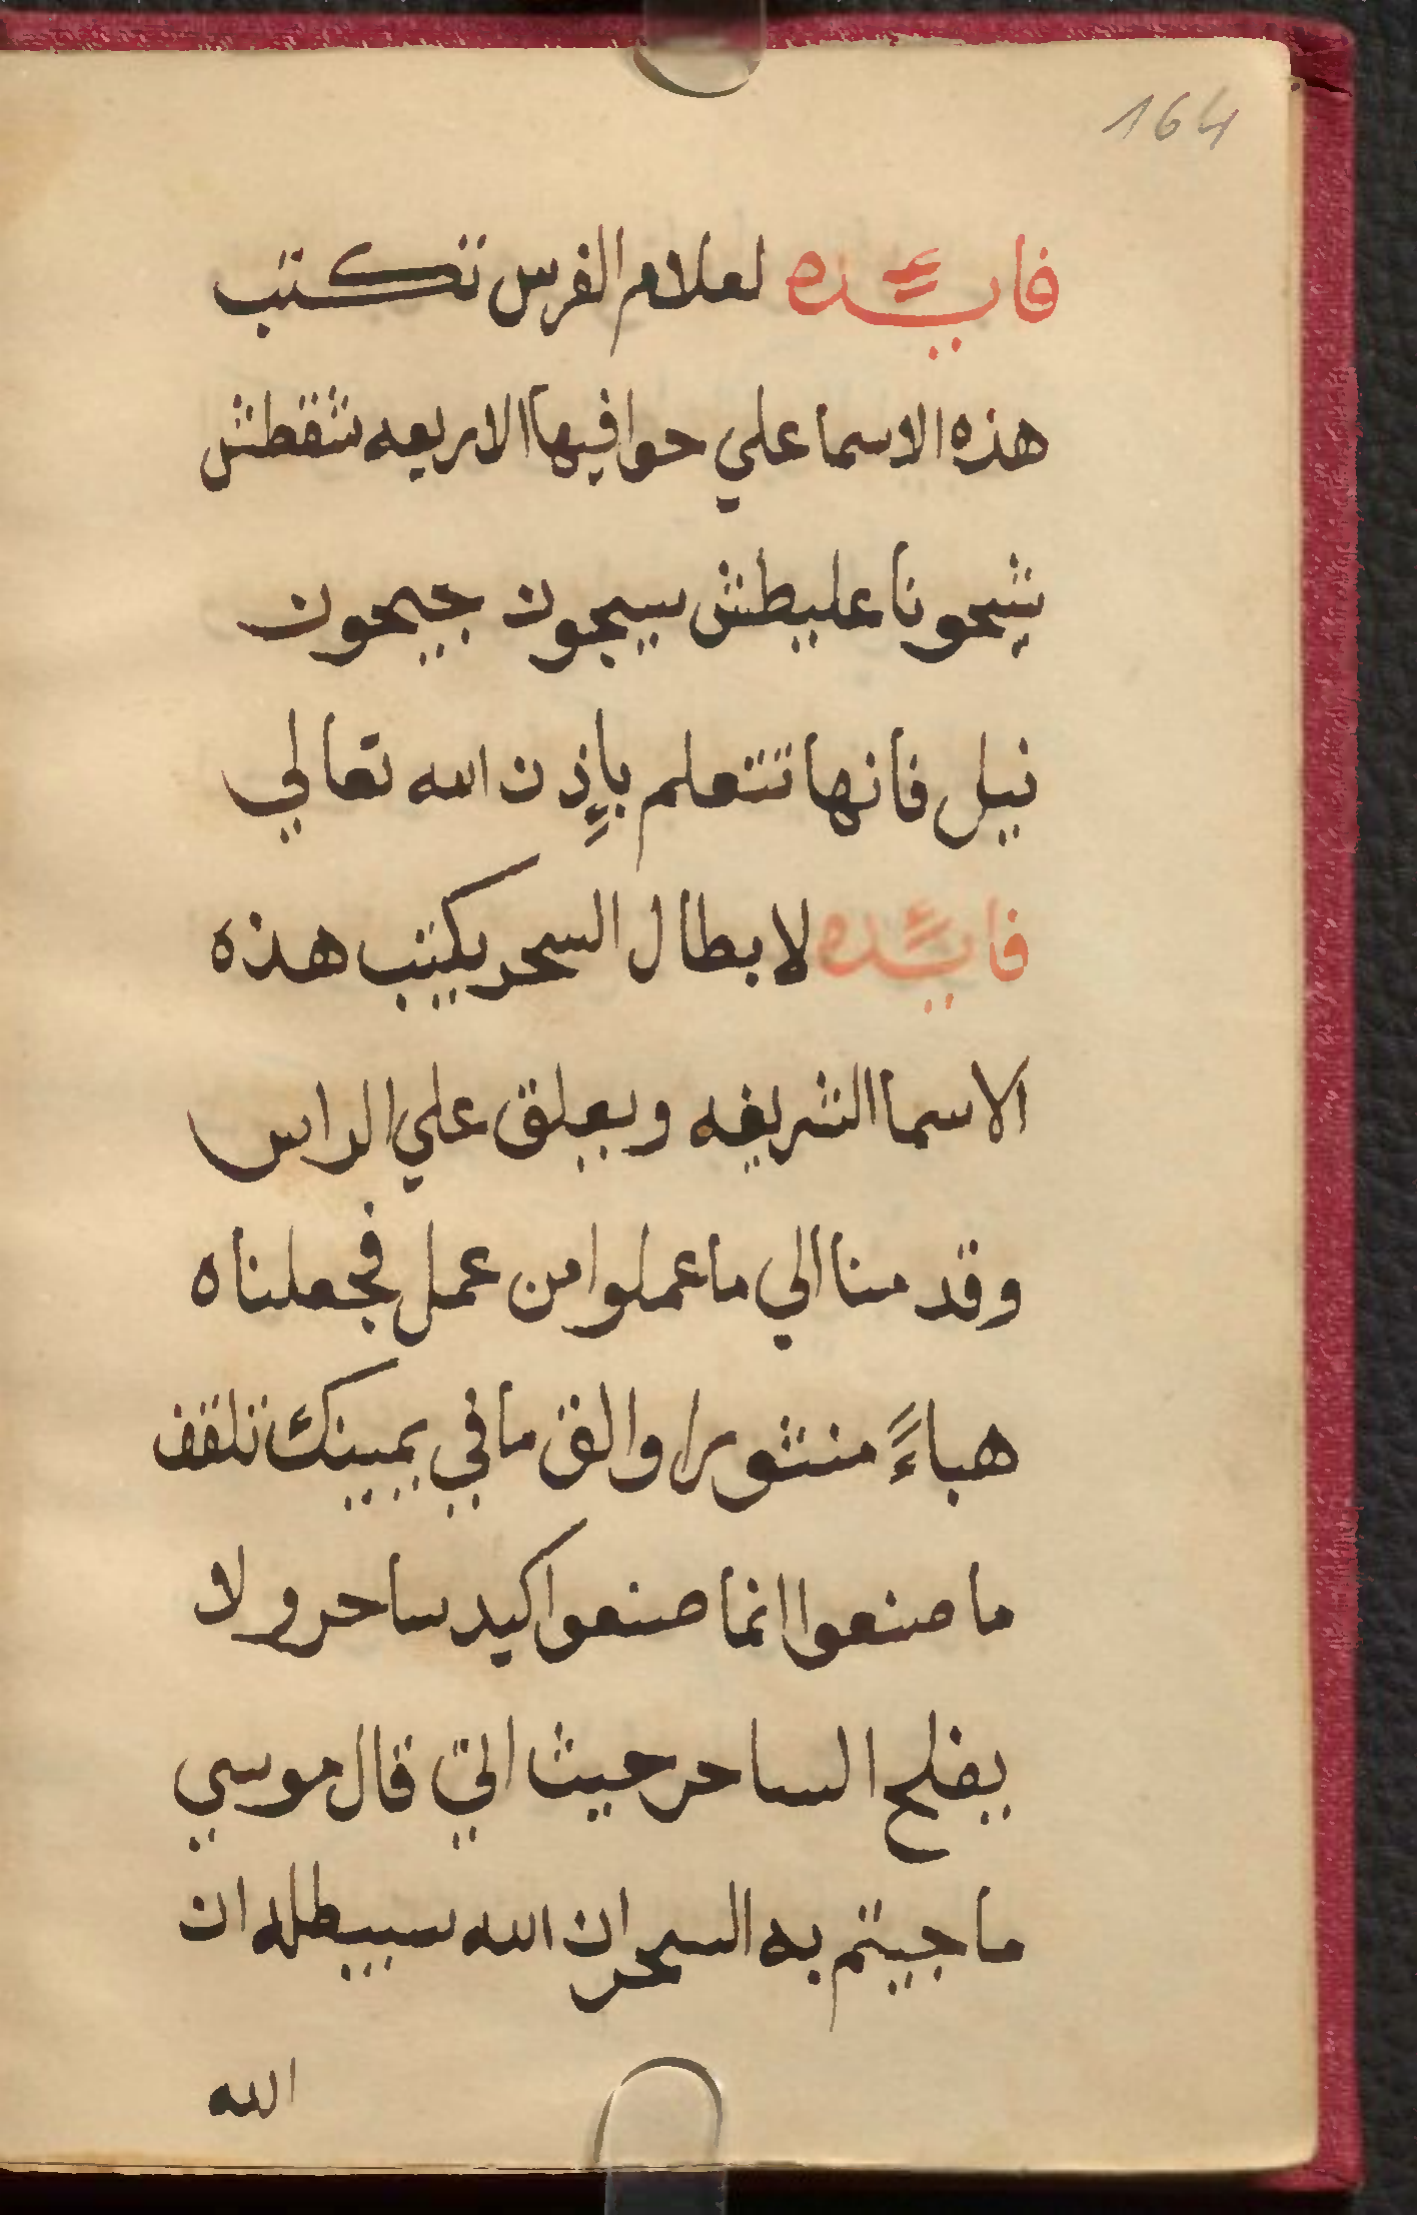 164
فايدةً لعلام الفرس تكتب
هذه الاسما علي حوافيها الاربعه شقطش
شيحونا عليطش سيجون جيحون
نيل فانها تتعلم بإذن الله تعالي
فايدةً لابطال السحر يكتب هذه
الاسما الشريفه ويعلق علي الراس
وقدمنا الي ما عملوا من عمل فجعلناه
هباءً منثورا والق ما في يمينك تلقف
ما صنعوا انما صنعوا كيد ساحر ولا
يفلح الساحر حيث اتي قال موسي
ما جيتم به السحر ان الله سيبطله ان
الله